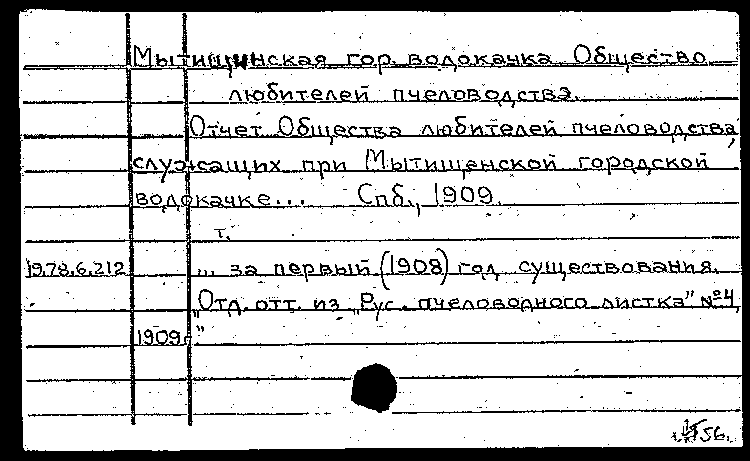 Мытищинская гор. водокачка Общество
любителей пчеловодства.
Отчет Общества любителей пчеловодства,
служащих при Мытищенской городской
водокачке... Спб., 1909.
т.
19.78.6.212 ... за первый (1908) год существования.
„Отд. отт. из „Рус. пчеловодного листка" №4,
1909г."
56.